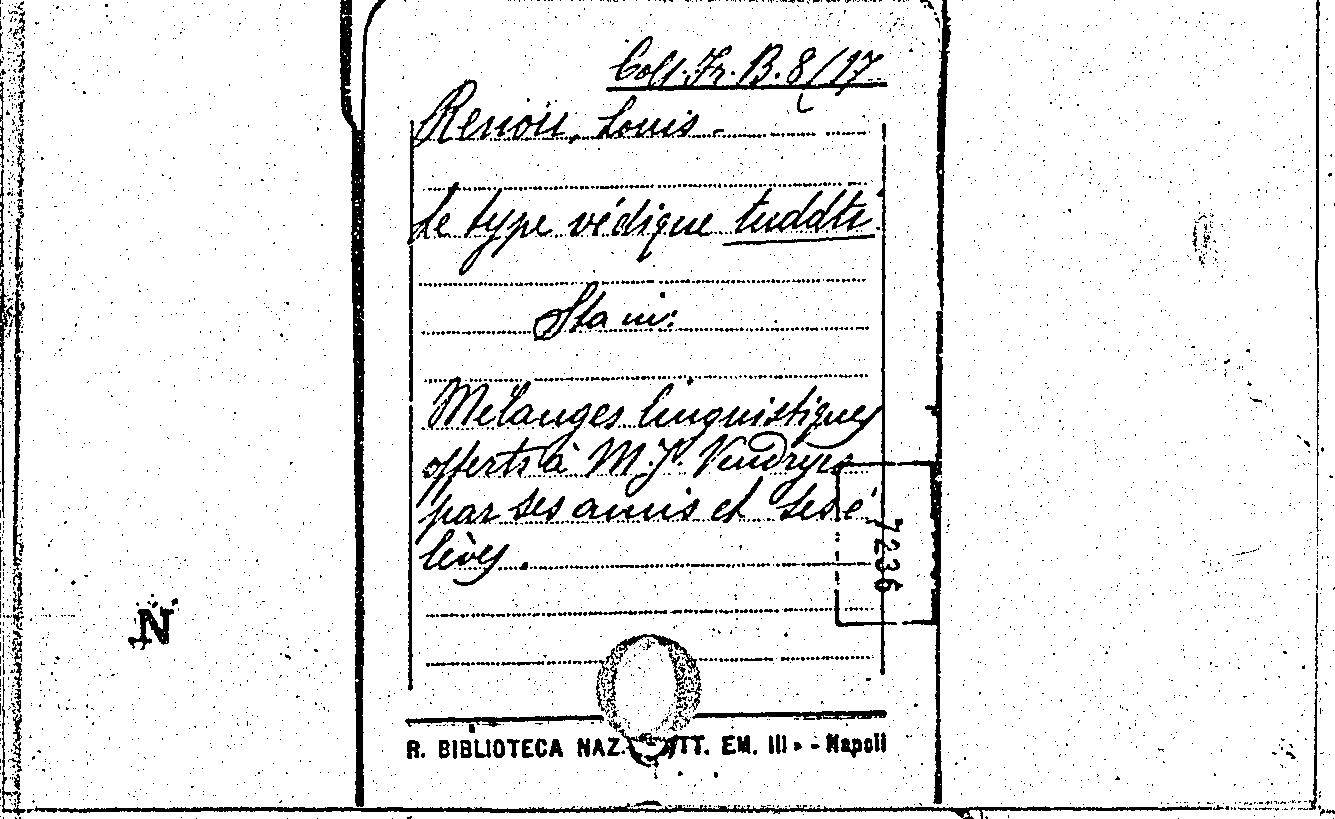 Coll. Fr. B. 8/17
Renou, Louis.
Le type védique tuddti.
Sta in:
Mélanges linguistiques
offerts à M. J. Vendryes
par ses amis et ses é
lèves.
7236
N
R. BIBLIOTECA NAZ. ITT. EM. III» - Napoli